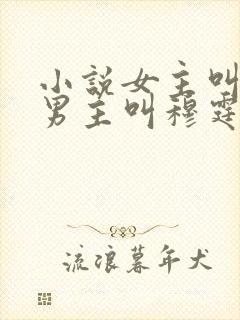 小说女主叫
男主叫穆霆
流浪暮年犬